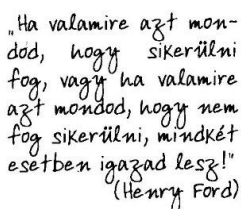 „Ha valamire azt mon-
dod, hogy sikerülni
fog, vagy ha valamire
azt mondod, hogy nem
fog sikerülni, mindkét
esetben igazad lesz!"
(Henry Ford)